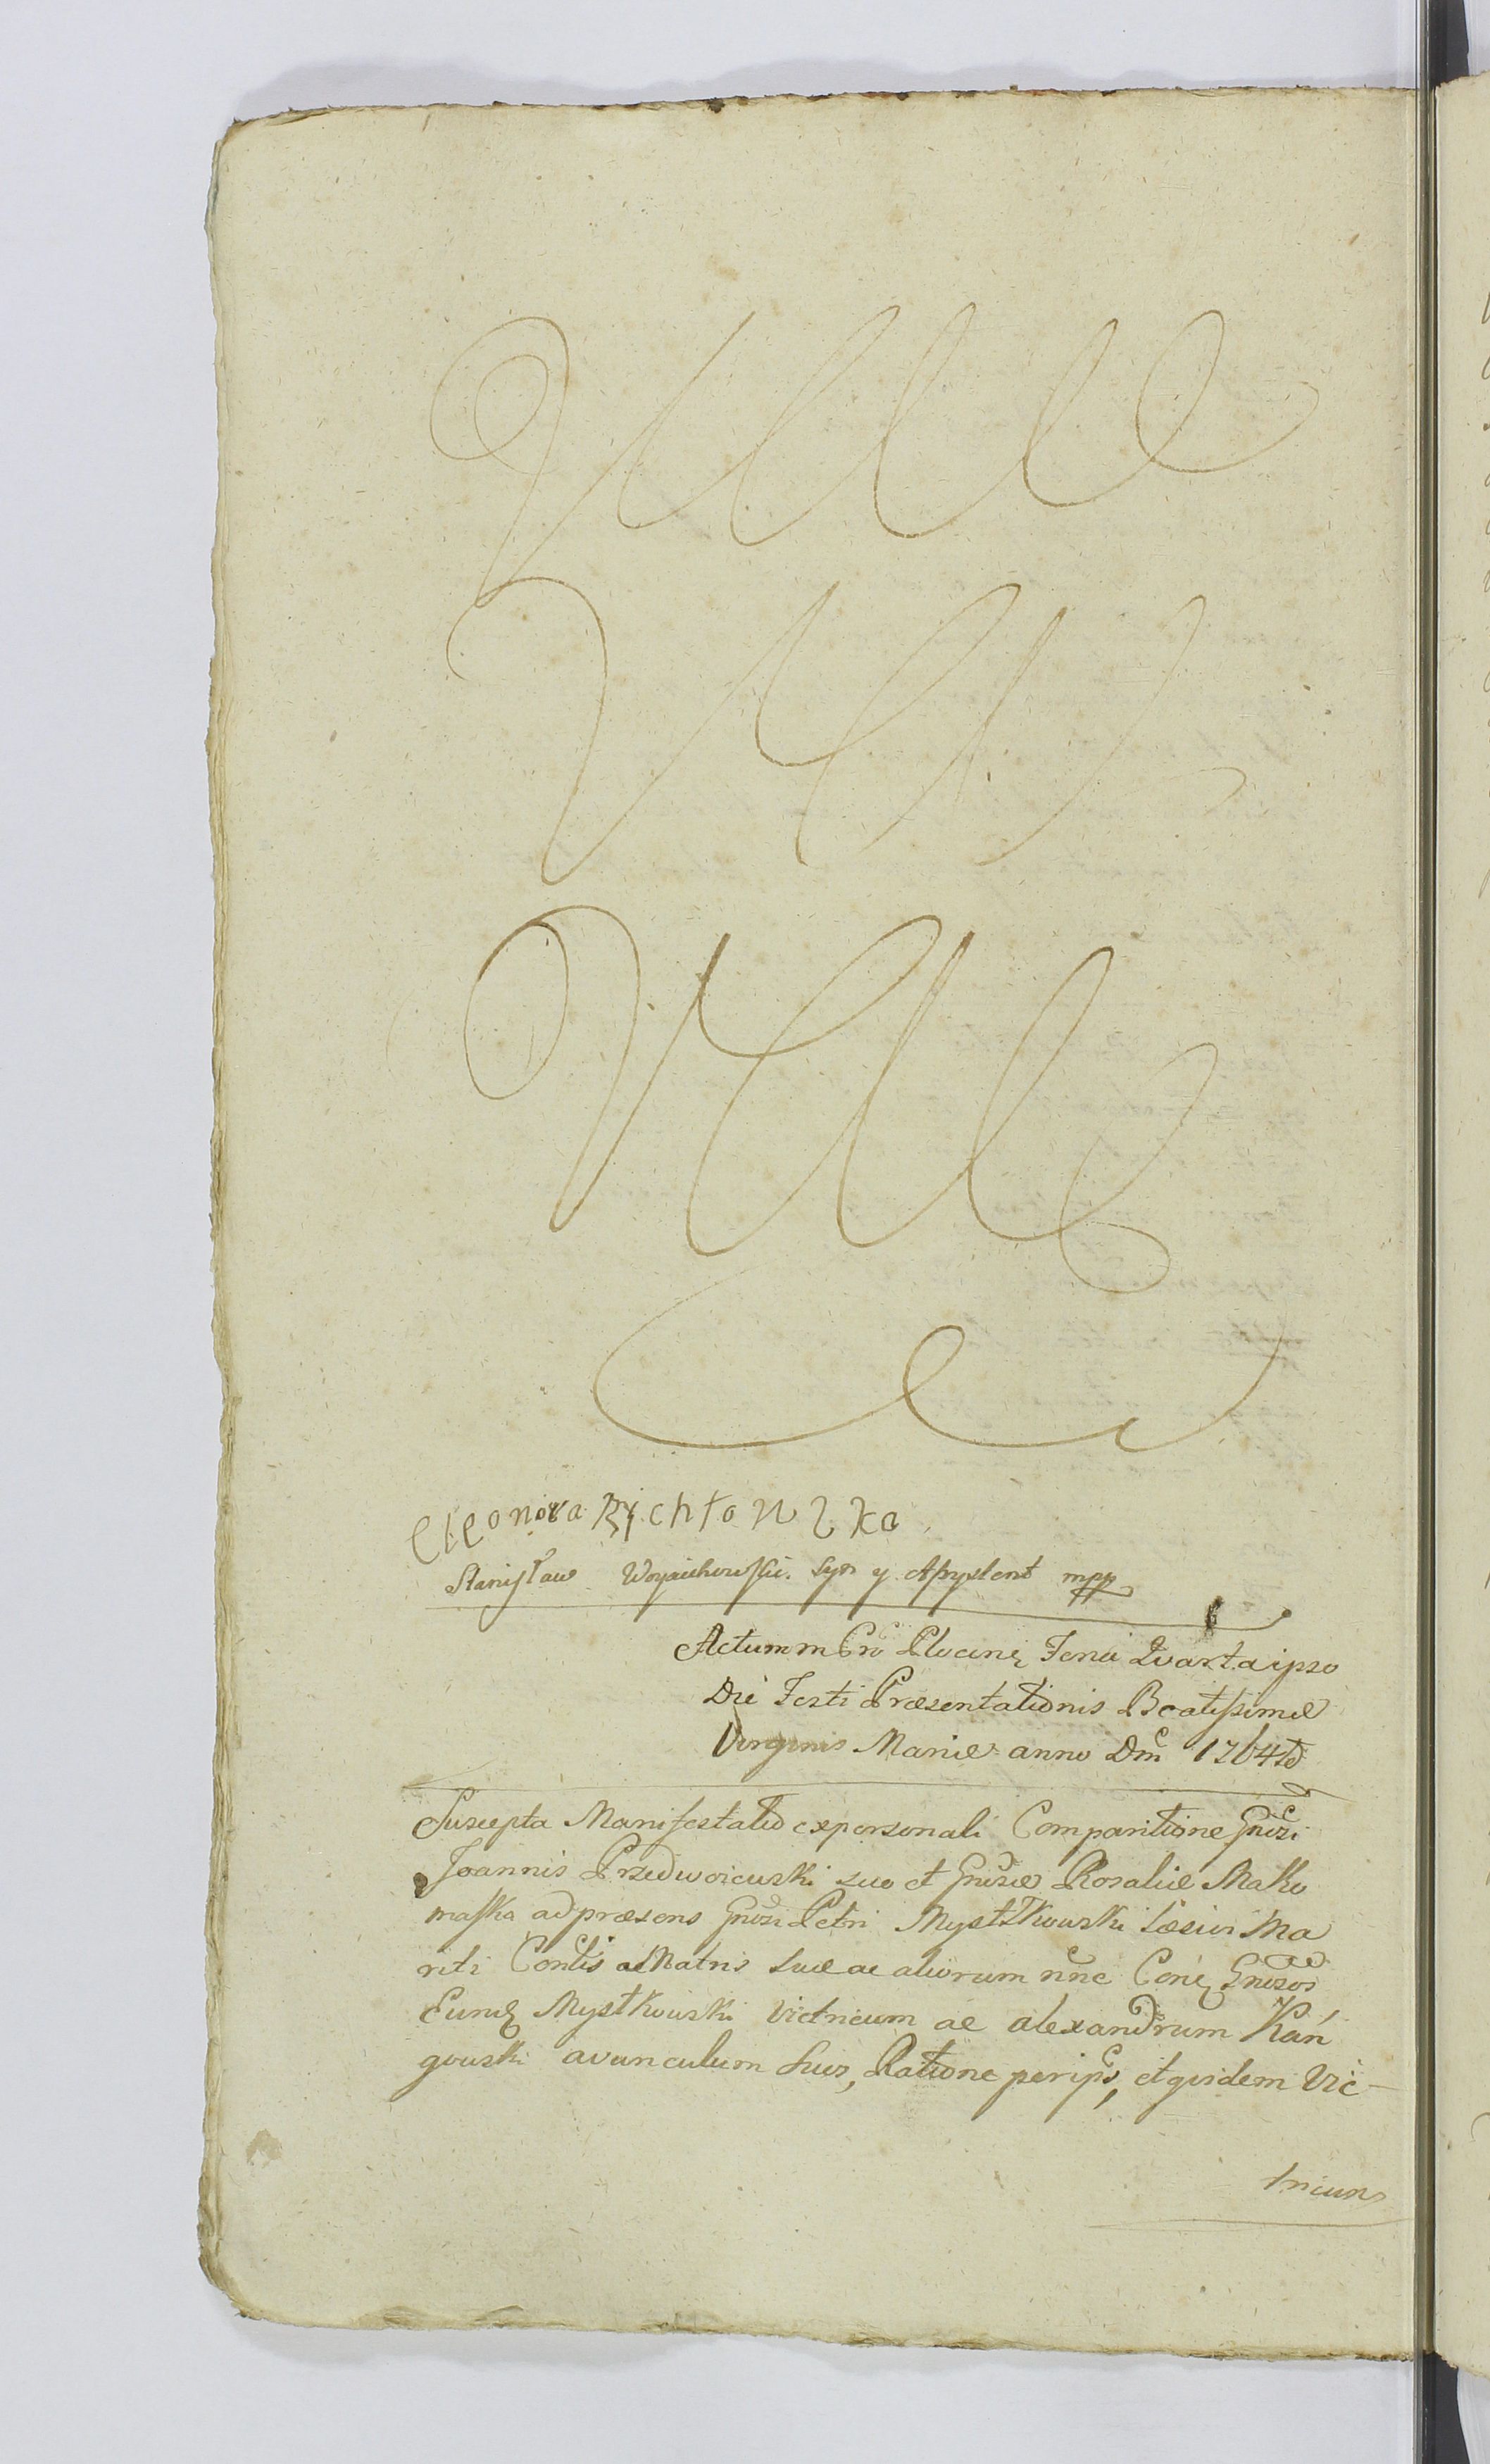 Eleonora Rychłowska
Stanisław Woyciechowski. Syn y Aßystent mpp
Actum in Cro Plocen Feria Quarta ipso
Die Festi Præsentationis Beatißimæ
Virginis Mariæ anno Dni 1764to
Suscepta Manifestatio expersonali Comparitione Gnosi
Joannis Przedwoiewski suo et Gnosæ Rosaliæ Mako
maska adpræsens Gnosi Petri Mystkowski Mariti
Contis ac Matris suæ ac aliorum nne Cone Gnosos
Eund Mystkowski Victricum ac alexandrum Kań
gowski avunculum suos, Ratione per ips, et quidem Vic-
tricum